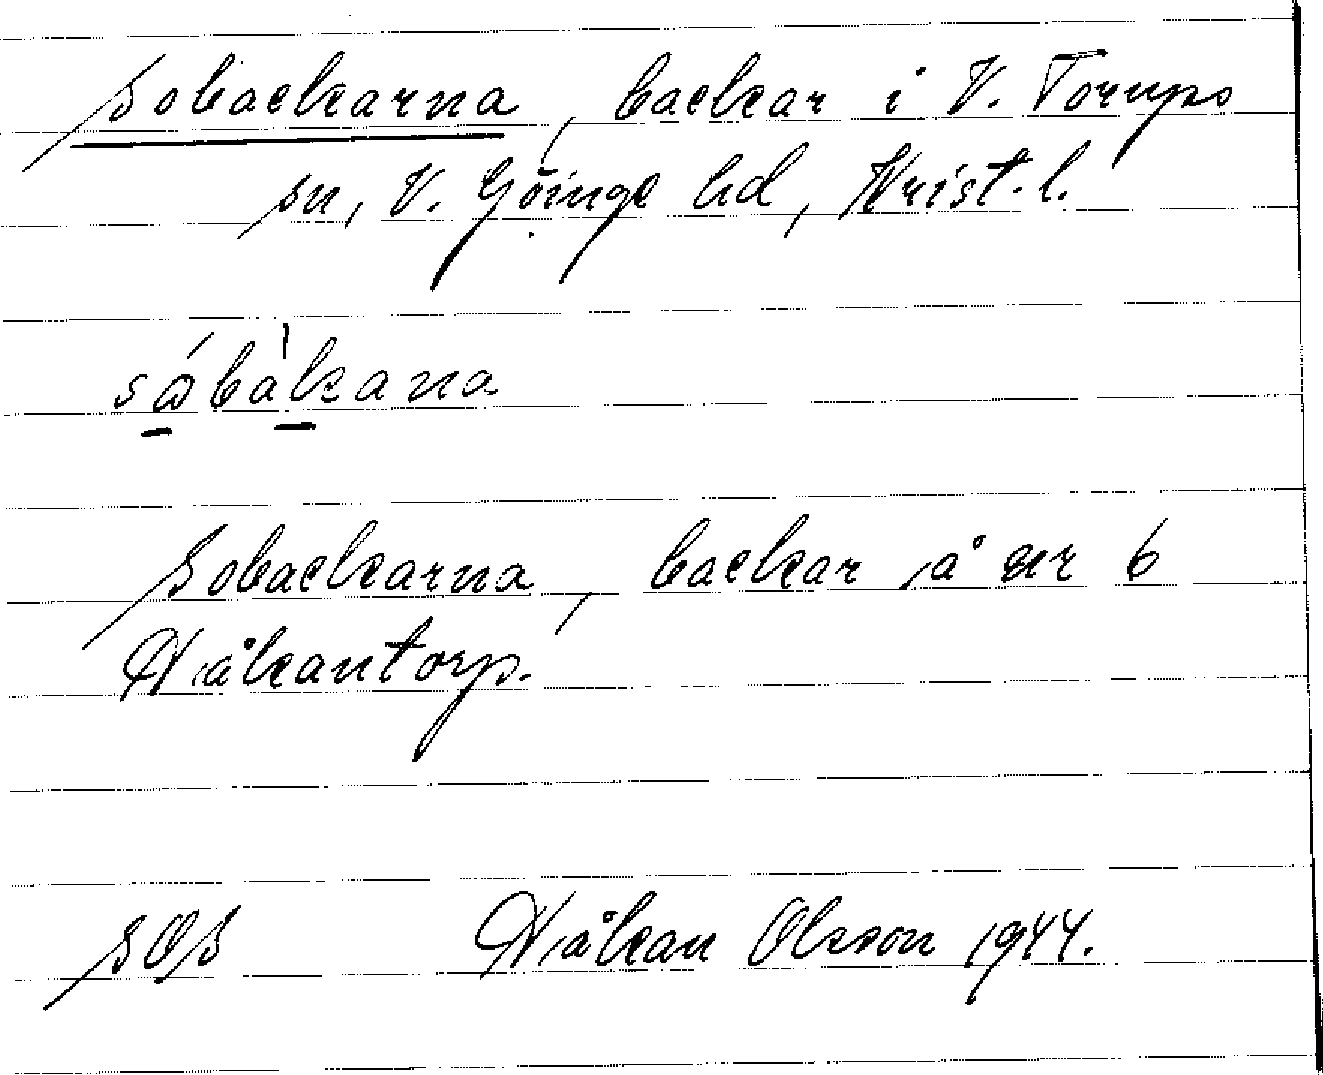 Sobackarna, backar i V. Torups
sn, V. Göinge hd, Krist. l.
sobackarna, backar å nr 6
Håkantorp.
SOS Håkan Olsson 1944.